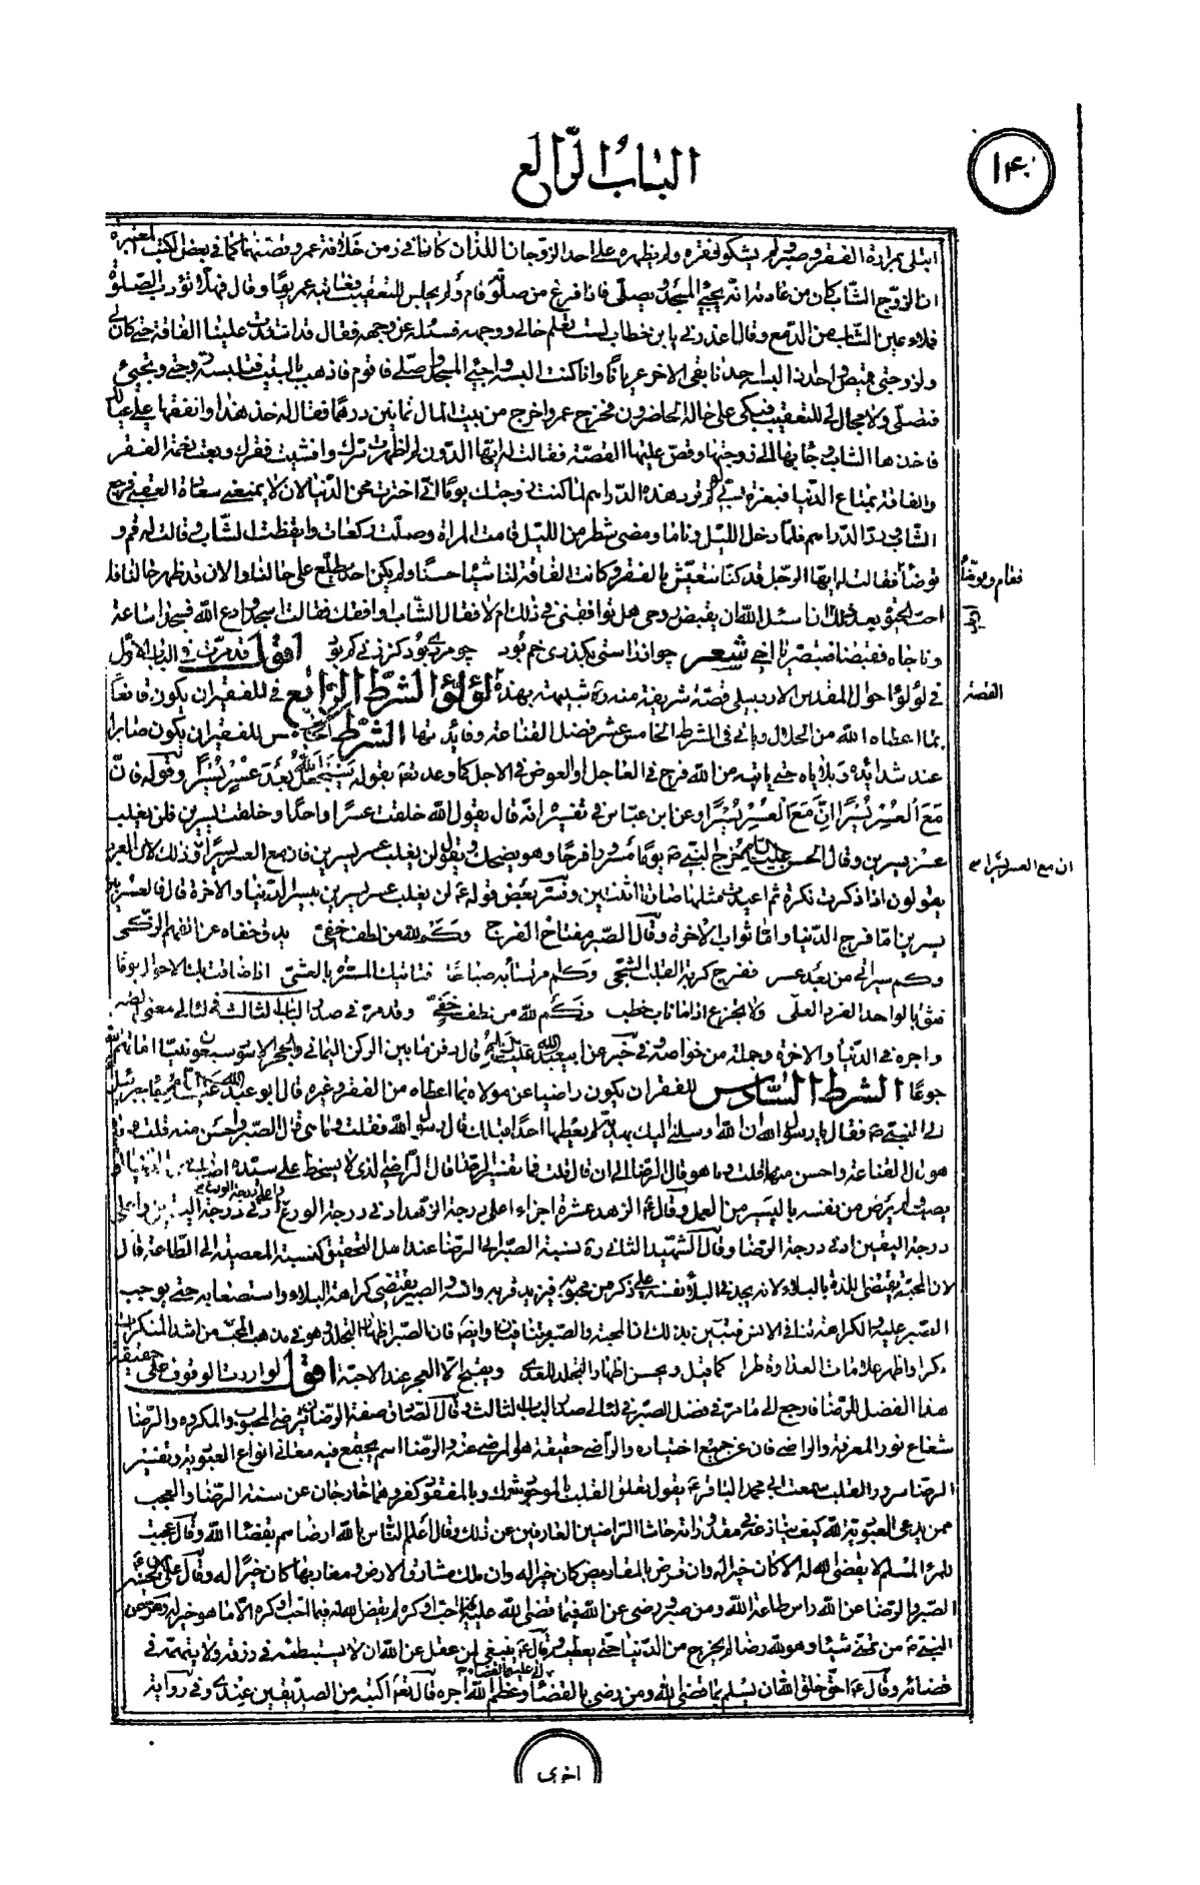 الباب الرابع
١۴٠
ابتلى بمرارة الفقر وصبر ولم يشكو لفقره ولم يظهره على احد الزوجان اللذان كانا في زمن خلافة عمر وقصتهما كما في بعض الكتب المعتبرة
ان الزوج الشاب كان من عادته انه يجيئ المسجد ويصلى فاذا فرغ من صلوته قام ولم يجلس للتعقيب فعاتبه عمر يوما وقال فهلا تؤدب الصلوة
فملاء عين الشاب من الدمع وقال عذرني يابن خطاب لست تعلم حالي ووجهه فسئله عن وجهه فقال قد اشتدت علينا الفاقة حتى كان لي
ولزوجتي قميص واحد اذا البسه احدنا بقى الاخر عريانا وانا كنت البسه واجيئ المسجد واصلى فاقوم فاذهب بالبيت فتلبسه زوجتي وتجيئ
فتصلى ولا مجال لي للتعقيب فبكى على حاله الحاضرون فخرج عمر واخرج من بيت المال ثمانين درهما فقال له خذ هذا وانفقها على عيالك
فاخذها الشاب وجابها الى زوجتها وقص عليها القصة فقالت له ايها الدون لم اظهرت سرك وافشيت فقرك وبعت نعمة الفقر
والفاقة بمتاع الدنيا فبعزة ربي لم ترد هذه الدراهم لما كنت زوجتك يوما اني اخترت محن الدنيا لان لا يمنعني سعادة العقبى فرجع
الشاب ورد الدراهم فلما دخل الليل وناما ومضى شطر من الليل قامت المراة وصلت ركعات وايقظت الشاب وقالت له قم و
توضأ فقالت له ايها الرجل قد كنا نتعيش بالفقر وكانت الفاقة لنا شيئا حسنا ولم يكن احد يطلع على حالنا والان قد ظهر حالنا فلا
فقام وتوضأ
احب الحيوة بعد ذلك انا اسئل الله ان يقبض روحي هل توافقني في ذلك ام لا فقال الشاب اوافقك فقالت اسجد وادع الله فسجدا ساعة
وناجاه فقبضا فقبض روحهما شعر اقول قد مرت في الباب الاول
في لؤلؤ احوال المقدس الاردبيلي قصة شريفة منه ره شبيهة بهذه القصة لؤلؤ الشرط الرابع في للفقير ان يكون قانعا
بما اعطاه الله من الحلال وياتي في الشرط الخامس عشر فضل القناعة وفوائدها الشرط الخامس للفقير ان يكون صابرا
عند شدائده وبلاياه حتى ياتيه من الله فرج في العاجل او العوض في الاجل كما وعد تعه بقوله سَيَجْعَلُ اللهُ بَعْدَ عُسْرٍ يُسْرًا وقوله فانّ
مَعَ الْعُسْرِ يُسْرًا اِنَّ مَعَ الْعُسْرِ يُسْرًا وعن ابن عباس في تفسيره انه قال يقول الله خلقت عسرا واحدا وخلقت يسرين فلن يغلب
عسر يسرين وقال الحسن خرج النبي ص يوما مسرورا فرحا وهو يضحك ويقول لن يغلب عسر يسرين فان مع العسر يسرا وذلك لان العرب
ان مع العسر يسرا
يقولون اذا ذكرت نكرة ثم اعيدت مثلها صارتا اثنتين وفسر بعض قوله ع لن يغلب عسر يسرين بيسر الدنيا والاخرة قال فالعسر بين
يسرين اما فرج الدنيا واما ثواب الاخرة وقال الصبر مفتاح الفرج وكم لله من لطف خفي يدق خفاه عن الفهم الزكى
وكم يسر اتى من بعد عسر ففرج كربة القلب الشجى وكم امر تساء به صباحا فتاتيك المسرة بالعشي اذا ضاقت بك الاحوال يوما
فثق بالواحد الفرد العلى ولا تجزع اذا ما ناب خطب وكم لله من لطف خفي وقد مر في صدر الباب الثالث في لئالى معنى الصبر
واجره في الدنيا والاخرة وجملة من خواصه وفي خبر عن ابيعبد الله عليه السلام قال دفن ما بين الركن اليماني والحجر الاسود سبعون نبيا اماتهم الله
جوعا الشرط السادس للفقير ان يكون راضيا عن مولاه بما اعطاه من الفقر وغيره قال ابو عبد الله جاء جبرئيل
الى النبي ص فقال يا رسول الله ان الله ارسلني اليك بهدية لم يعطها احدا قبلك قال رسول الله فقلت وما هي قال الصبر واحسن منه قلت وما
هو قال القناعة واحسن منها قلت وما هو قال الرضا الى ان قال قلت فما تفسير الرضا قال الراضي الذي لا يسخط على سيده اصاب من الدنيا ام
يصب ولم يرض من نفسه باليسير من العمل وقال ع الزهد عشرة اجزاء اعلى درجة الزهد ادنى درجة الورع واعلى درجة الورع ادنى درجة اليقين واعلى
درجة اليقين ادنى درجة الرضا وقال الشهيد الثاني ره نسبة الصبر الى الرضا عند اهل التحقيق كنسبة المعصية الى الطاعة قال
لان المحبة يقتضى اللذة بالبلاء لانه يجد في البلاء نفسه على ذكر من محبوبه فيزيد قربه وانسه والصبر يقتضى كراهة البلاء واستصعابه حتى يوجب
الصبر عليه والكراهة تنافي الانس فتبين بذلك ان المحبة والصبر متنافيان وايضا فان الصبر اظهار التجلد وهو في مذهب المحبة من اشد المنكرات
ذكرا واظهر علامات العداوة طرا كما قيل ويحسن اظهار التجلد للعدى ويقبح الا العجز عند الاحبة اقول لو اردت الوقوف على حقيقة
هذا الفضل للرضا فارجع الى ما مر في فضل الصبر في لئالى صدر الباب الثالث وقال الصادق صفة الرضا ان يرضى المحبوب والمكروه والرضا
شعاع نور المعرفة والراضي فان عن جميع اختياره والراضي حقيقة هو المرضي عنه والرضا اسم يجتمع فيه معاني انواع العبودية وتفسير
الرضا سرور القلب سمعت ابي محمد الباقر ع يقول تعلق القلب بالموجود شرك وبالمفقود كفر وهما خارجان عن سنة الرضا والعجب
ممن يدعى العبودية لله كيف ينازعه في مقدوراته حاشا الراضين العارفين عن ذلك وقال اعلم الناس بالله ارضاهم بقضاء الله وقال عجبت
للمرء المسلم لا يقضى الله له الا كان خيرا له وان قرض بالمقاريض كان خيرا له وان ملك مشارق الارض ومغاربها كان خيرا له وقال على بن الحسين
الصبر والرضا عن الله راس طاعة الله ومن صبر ورضى عن الله فيما قضى الله عليه فيما احب او كره لم يقض الله له فيما احب او كره الا ما هو خير له وعن
النبي ص من تمنى شيئا وهو لله رضا لم يخرج من الدنيا حتى يعطيه وقال ع ينبغى لمن عقل عن الله ان لا يستبطئه في رزقه ولا يتهمه في
قضائه وقال ع احق خلق الله ان يسلم بما قضى الله ومن رضى بالقضاء اتى عليه القضاء وعظم الله اجره قال تعه اكتبه من الصديقين عندي وفي رواية
اخرى